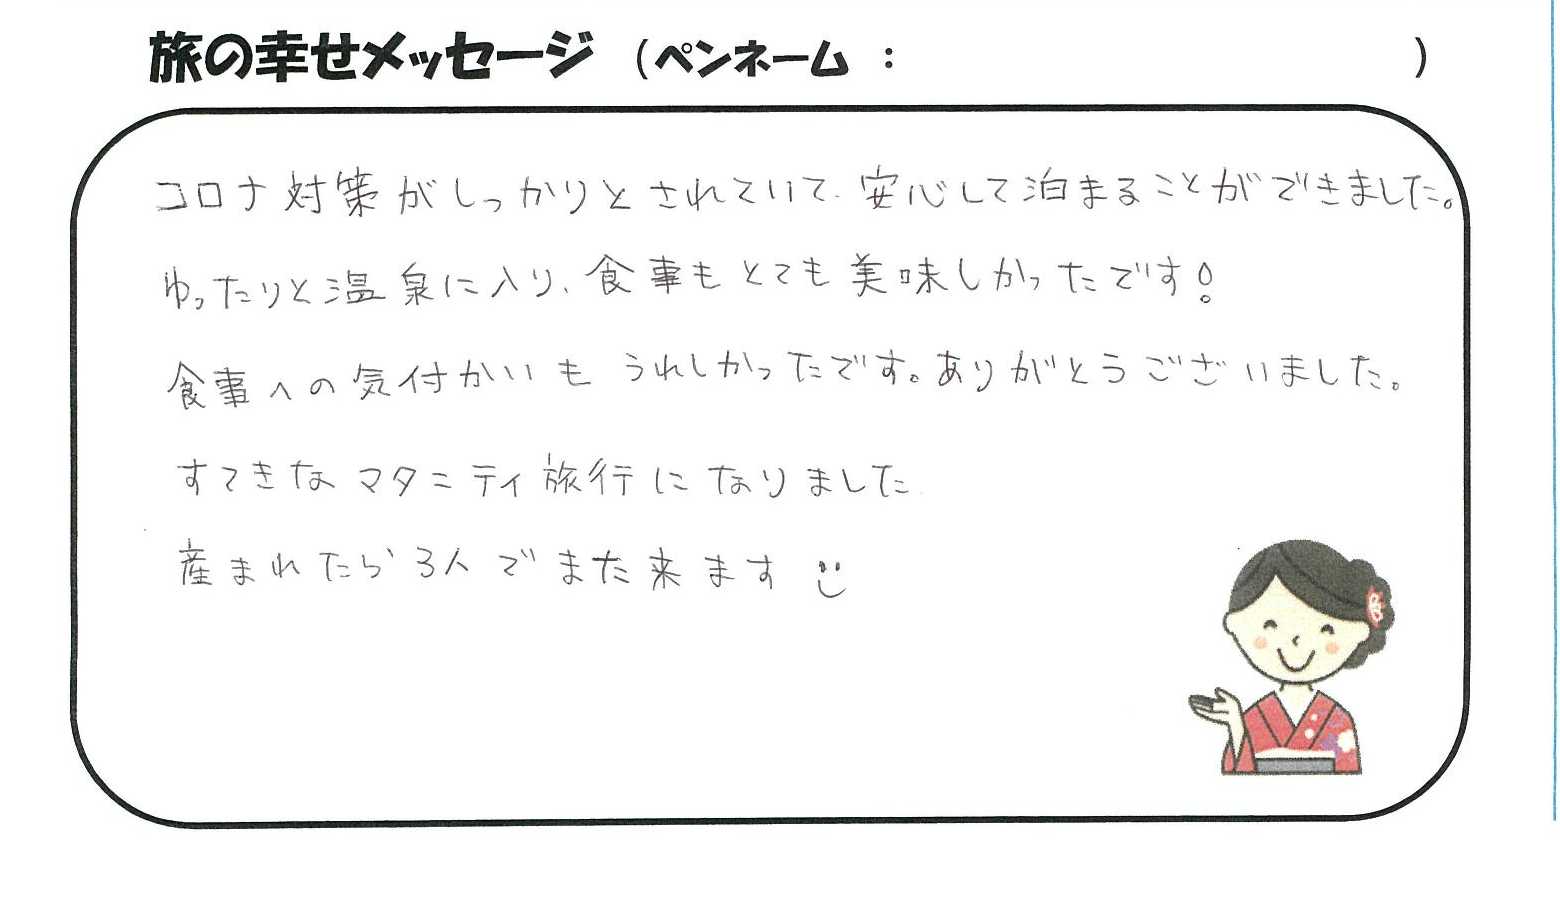 旅の幸せメッセージ （ペンネーム ： ）
コロナ対策がしっかりとされていて、安心して泊まることができました。
ゆったりと温泉に入り、食事もとても美味しかったです!
食事への気付かいも うれしかったです。ありがとうございました。
すてきな マタニティ旅行に なりました
産まれたら 3人で また来ます